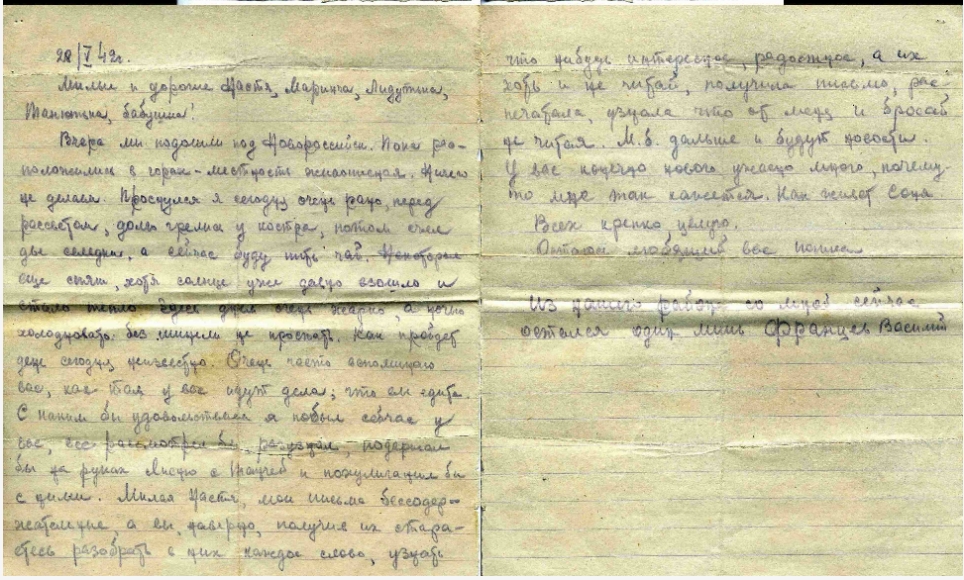 28/V 42г.
Милые и дорогие Настя, Маринка, Лидутина,
Танютина, бабушка!
Вчера мы подошли под Новороссийск. Пока рас-
положились в горах - местность живописная. Ничего
не делаем. Проснулся я сегодня очень рано, перед
рассветом, долго грелся у костра, потом съел
две селедки, а сейчас буду пить чай. Некоторые
еще спят, хотя солнце уже давно взошло и
стало тепло. Здесь днем очень жарко, а ночью
холодновато. без шинели не проспать. Как пройдет
день сегодня неизвестно. Очень часто вспоминаю
вас, как там у вас идут дела; что вы едите.
С каким бы удовольствием я побыл сейчас у
вас, все рассмотрел бы, разузнал, подержал
бы на руках Лидую с Танчей и похулиганил бы
с ними. Милая Настя, мои письма бессодер-
жательные, а вы, наверно, получив их стара-
етесь разобрать в них каждое слово, узнать
что нибудь интересное, радостное, а их
хоть и не читай, получила письмо, рас-
печатала, узнала что от меня и бросай
не читая. М.б. дальше и будут новости.
У вас конечно нового ужасно много, почему
то мне так кажется. Как живет Соня
Всех крепко целую.
Остаюсь любящий вас папка
Из нашего района со мной сейчас
остался один лишь Францев Василий